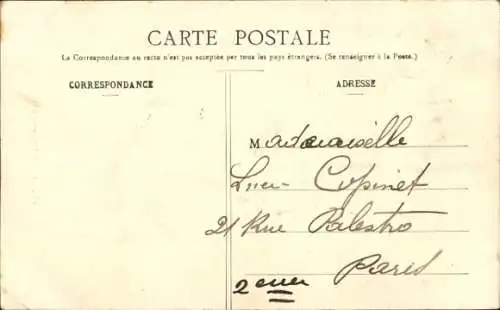 CARTE POSTALE
La Correspondance au recto n'est pas acceptée par tous les pays étrangers. (Se renseigner à la Poste.)
CORRESPONDANCE
ADRESSE
Mademoiselle
Copinet
21 Rue Palestro
Paris
2eme